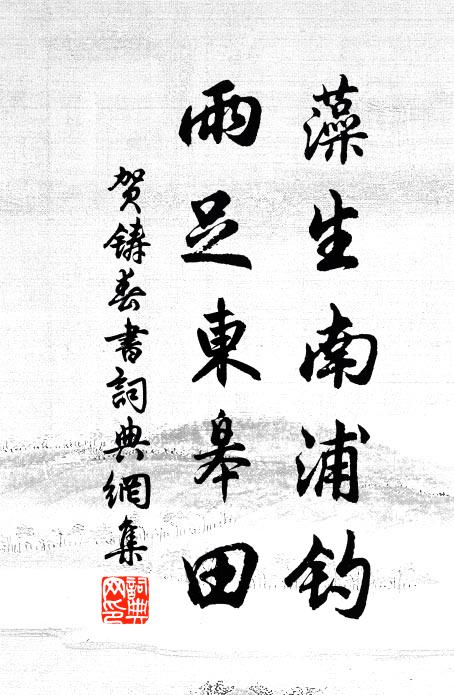 藻生南浦钓
雨足東皋田
贺鑄春書詞典網集
詞典
网印